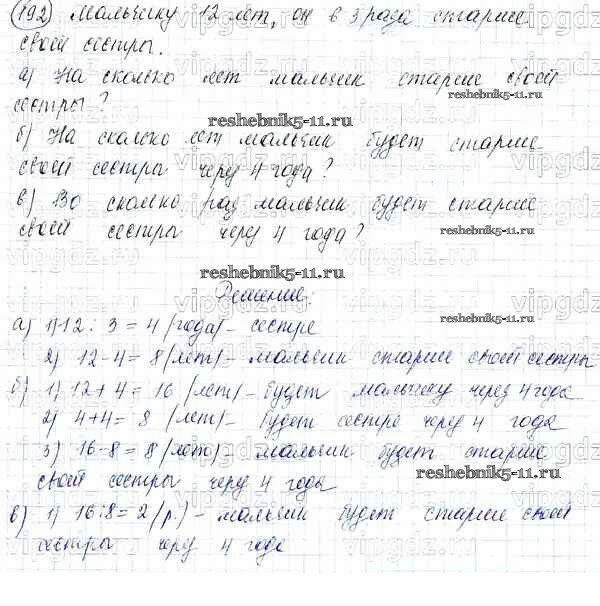 192 Мальчику 12 лет, он в 3 раза старше
своей сестры.
а) На сколько лет мальчик старше своей
сестры?
reshebnik5-11.ru
reshebnik5-11.ru
б) На сколько лет мальчик будет старше
своей сестры через 4 года?
в) Во сколько раз мальчик будет старше
своей сестры через 4 года?
reshebnik5-11.ru
reshebnik5-11.ru
Решение:
а) 1) 12 : 3 = 4 (года) – сестре
2) 12 - 4 = 8 (лет) – мальчик старше своей сестры
б) 1) 12 + 4 = 16 (лет) – будет мальчику через 4 года
2) 4 + 4 = 8 (лет) – будет сестре через 4 года
3) 16 - 8 = 8 (лет) – мальчик будет старше
своей сестры через 4 года
reshebnik5-11.ru
в) 1) 16 : 8 = 2 (р.) – мальчик будет старше своей
сестры через 4 года
vipgdz